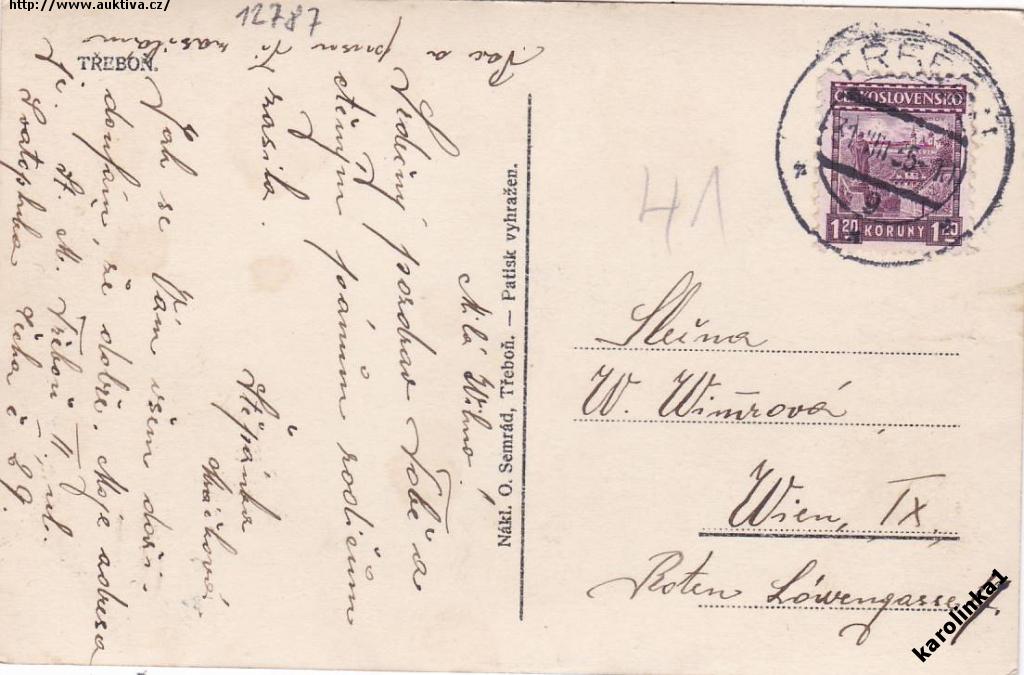 http://www.auktiva.cz/
12787
TŘEBOŇ.
Milá Wilmo!
Srdečný pozdrav Tobě a
ctěným pánům rodičům
Ti zasílá
Štěpánka
Jak se Vám všem daří.
doufám, že dobře. Moje adresa
je: St. M. Třeboň II. ul.
Svatopluka Čecha č 29.
Pac a pusu Ti zasílám
Nákl. O. Semrád, Třeboň. — Patisk vyhražen.
41
ČESKOSLOVENSKO
1.20 KORUNY 1.20
Slečna
W. Wimrová
Wien, IX.
Roten Löwengasse
karolinka1